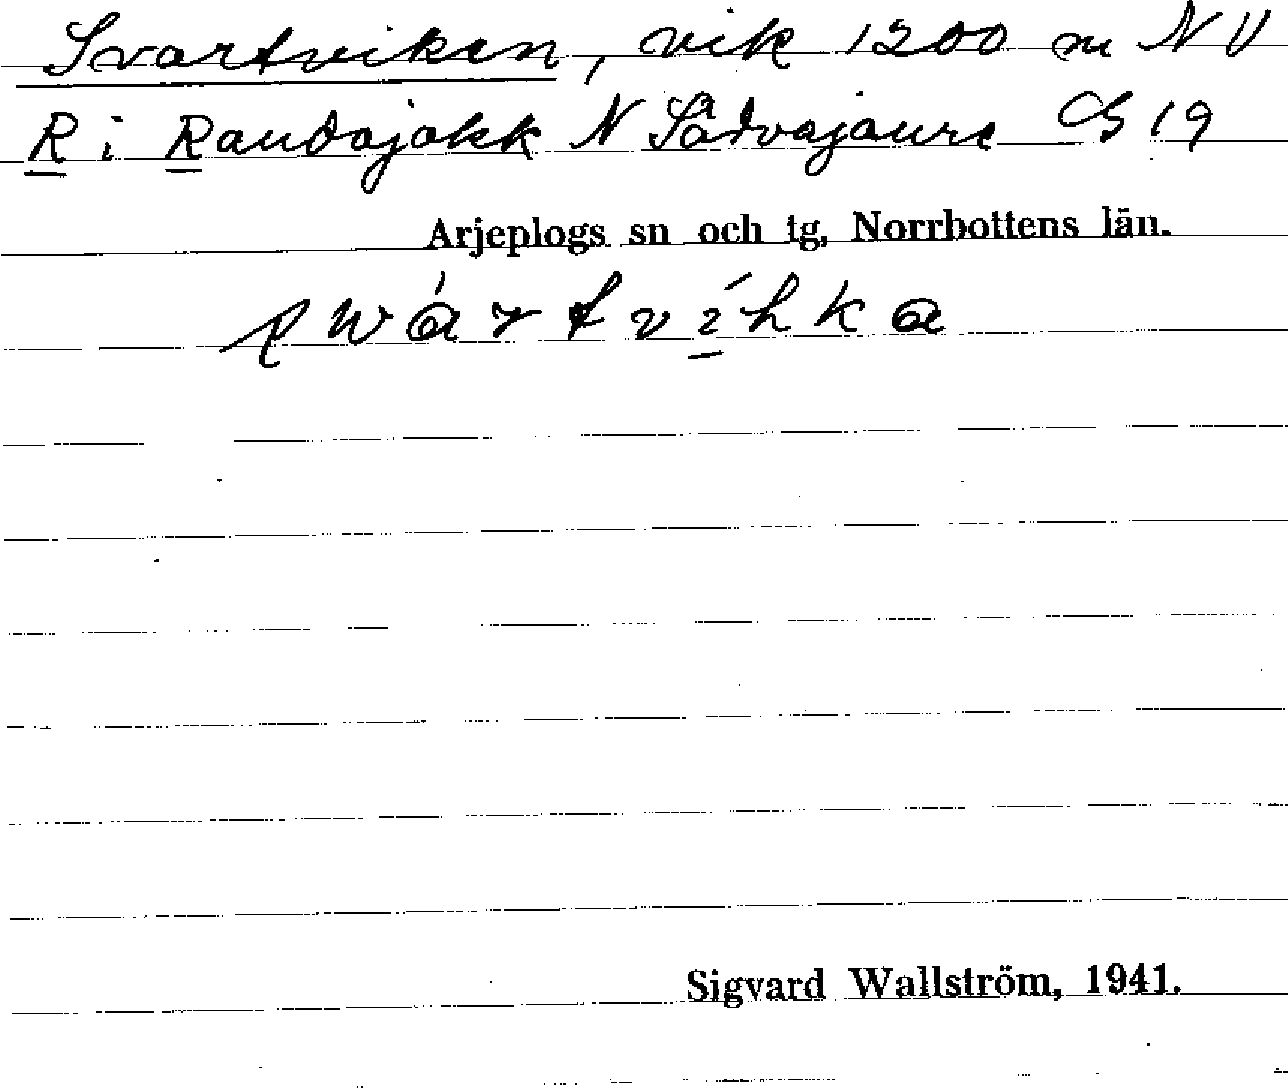 Svartviken, vik 1200 m NV
R i Raudojokk N Sädvajaure C 19
Arjeplogs sn och tg, Norrbottens län.
swártvíhka
Sigvard Wallström, 1941.